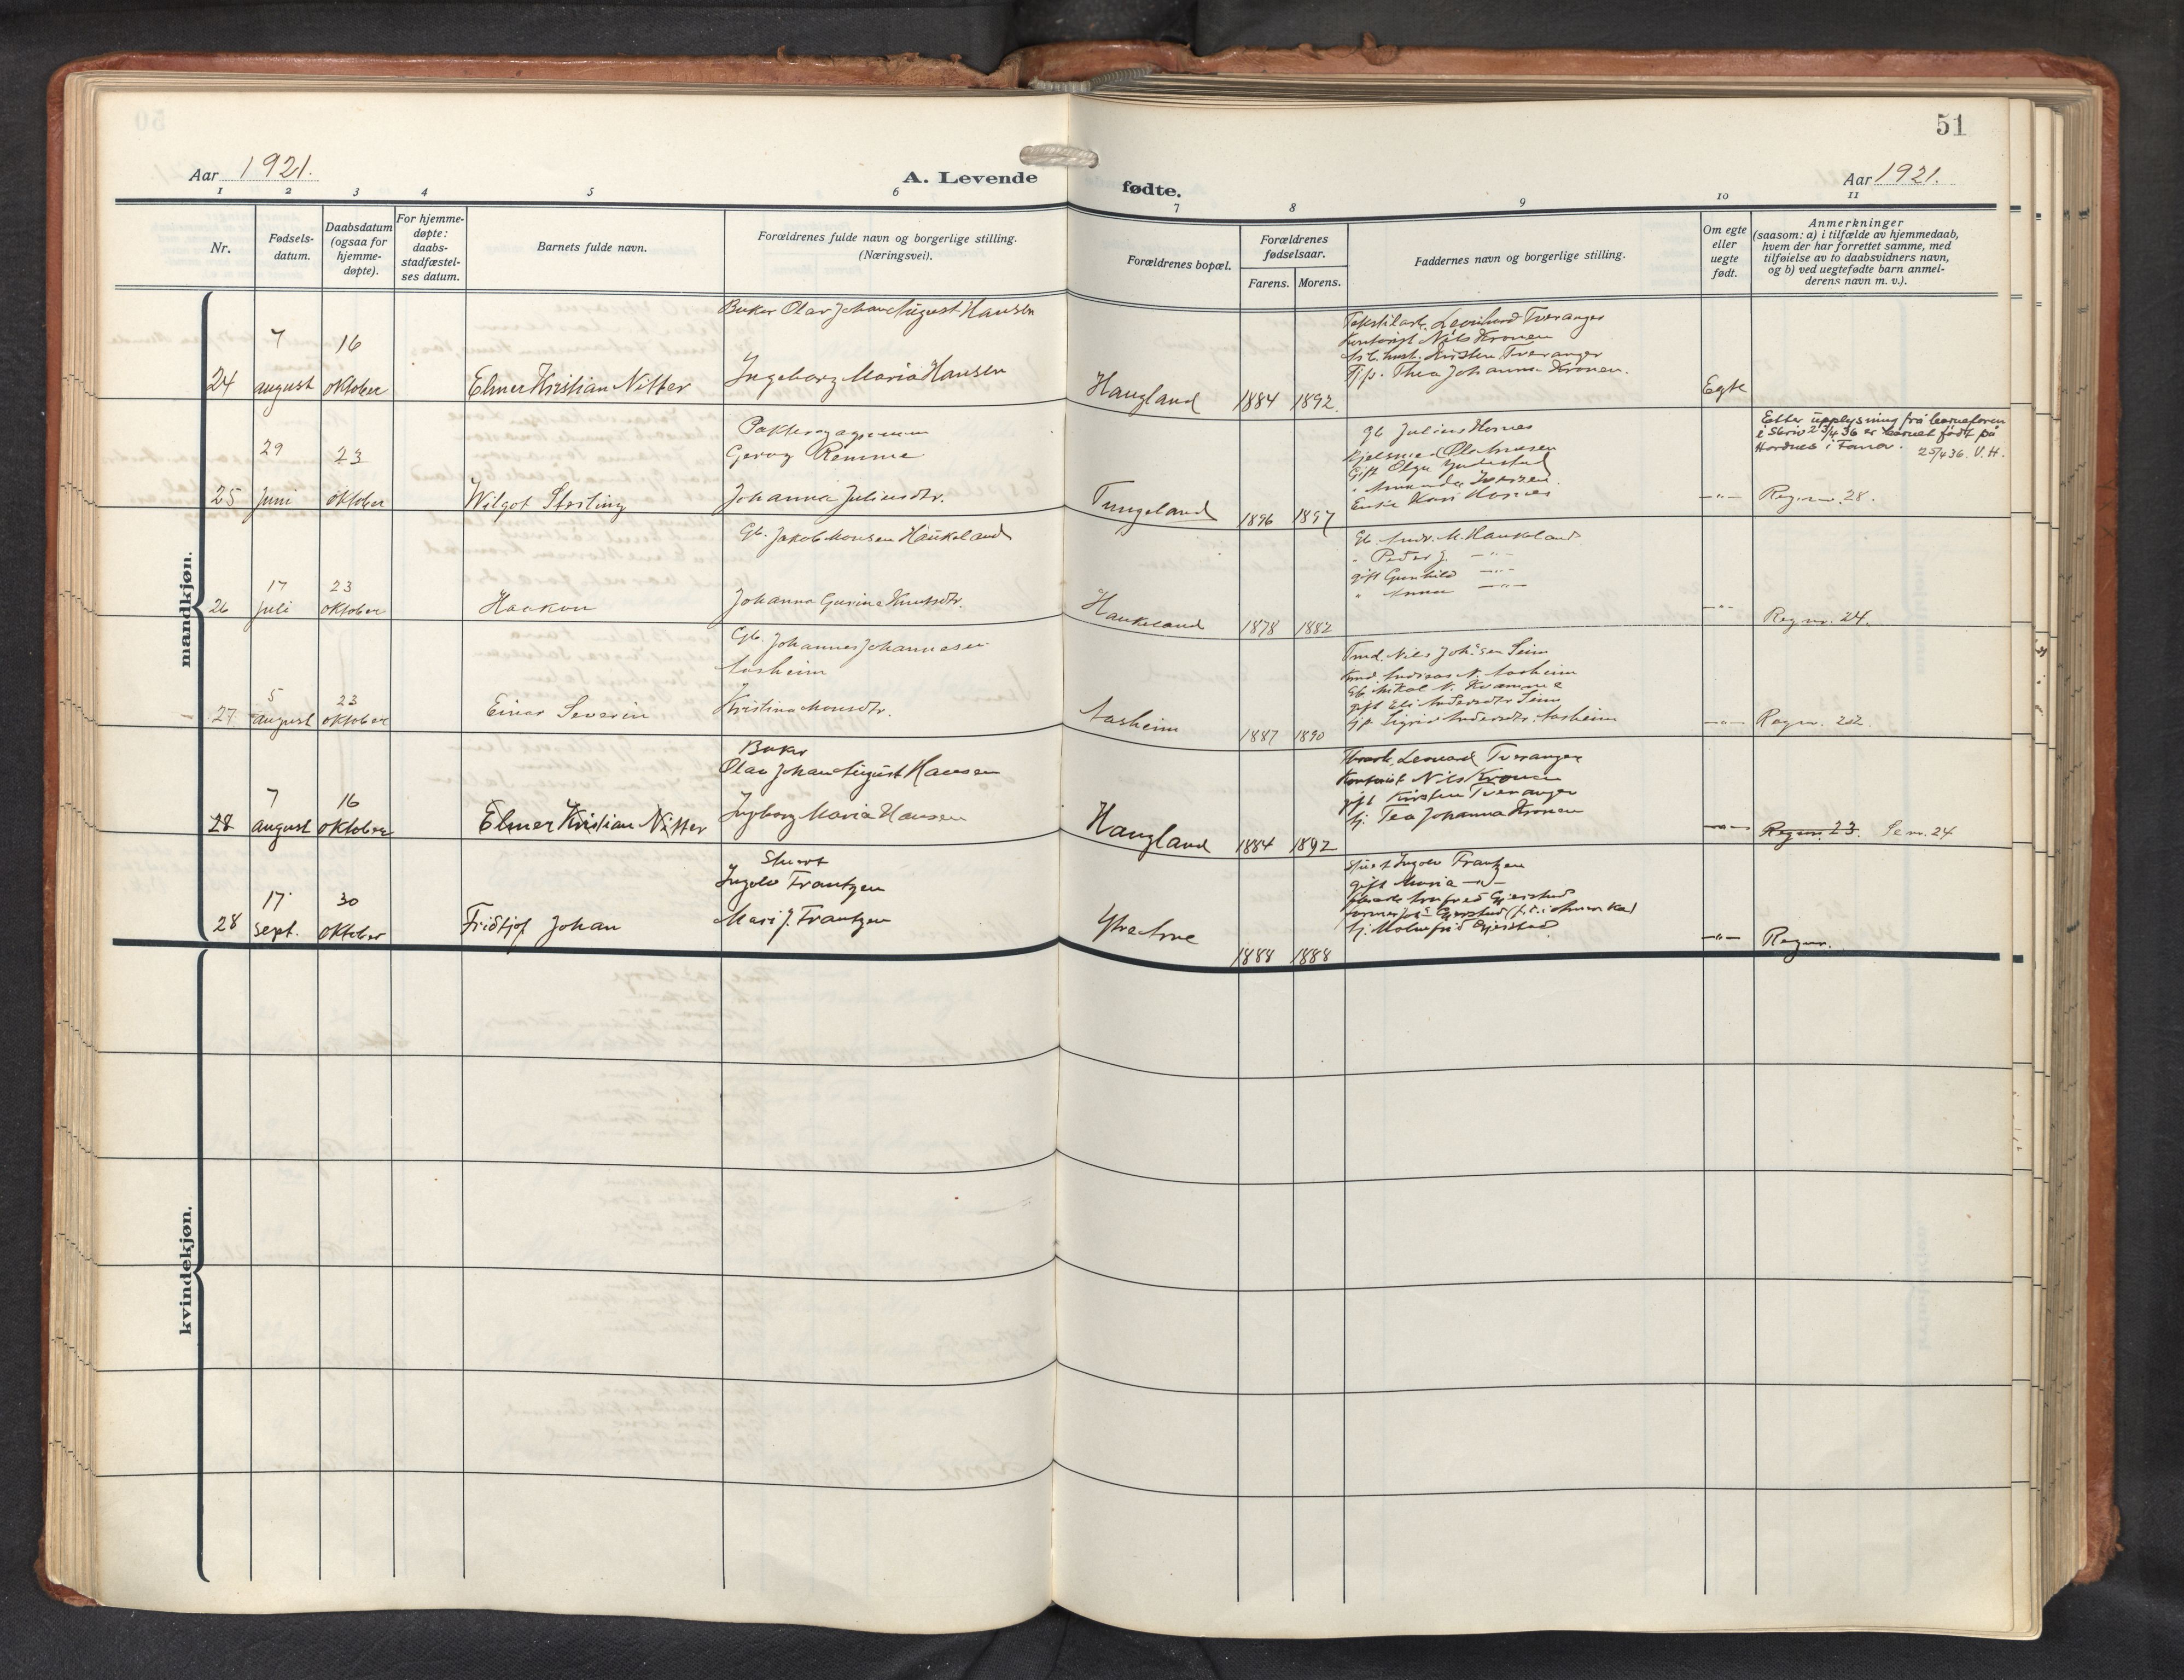 51
Aar 1921.
A. Levende
fødte.
Aar 1921.
1 2 3 4 5 6 7 8 9 10 11
Nr.
Fødsels-
datum.
Daabsdatum
(ogsaa for
hjemme-
døpte).
For hjemme-
døpte:
daabs-
stadfæstel-
ses datum.
Barnets fulde navn.
Forældrenes fulde navn og borgerlige stilling.
(Næringsvei).
Forældrenes bopæl.
Forældrenes
fødselsaar.
Farens. Morens.
Faddernes navn og borgerlige stilling.
Om egte
eller
uegte
født.
Anmerkninger
(saasom: a) i tilfælde av hjemmedaab,
hvem der har forrettet samme, med
tilføielse av to daabsvidners navn,
og b) ved uegtefødte barn anmel-
derens navn m. v.).
mandkjøn.
24
7
august
16
oktober
Elmer Kristian Nitter
Baker Olav Johan August Hansen
Ingeborg Maria Hansen
Haugland
1884 1892.
Leonhard Tveranger
Kontorist Nils Kronen
Kirsten Tveranger
Thea Johanna Kronen.
Egte
25
29
juni
23
oktober
Wilgot Sterling
Remme
Johanna Juliusdtr.
Tungeland
1896 1897
Gb. Julius Hornes
Gift Olga
Enke Kari Hornes
-"-
Efter upplysning frå
i skriv 23/4 36 er barnet født på
Hordnes i Fana. 25/4 36. V.H.
Regnr. 28.
26
17
juli
23
oktober
Haakon
Gb. Jakob Monsen Haukeland
Johanna Gurine Knutsdtr.
Haukeland
1878 1882
Gb. Andr. M. Haukeland
" Peder J. -"-
gift Gunhild -"-
" Anna -"-
-"-
Regnr. 24.
27
5
august
23
oktober
Einar Severin
Gb. Johannes Johannesen
Aasheim
Kristina Monsdtr.
Aasheim
1887 1890
Nils Joh.sen Seim
Andreas N. Aasheim
Gb. Mikal N. Kvamme
gift Eli Andersdtr Seim
Sigrid Andersdtr. Aasheim
-"-
Regnr. 22.
28
7
august
16
oktober
Elmer Kristian Nitter
Baker
Olav Johan August Hansen
Ingborg Maria Hansen
Haugland
1884 1892
Leonard Tveranger
Kontorist Nils Kronen
gift Kirsten Tveranger
tj. Tea Johanna Kronen
-"-
Regnr. 23. Se nr. 24
28
17
sept.
30
oktober
Fridtjof Johan
Stuert
Ingolv Frantzen
Mari J. Frantzen
Ytre Arne
1888 1888
Stuert Ingolv Frantzen
gift Maria -"-
-"-
Regnr.
kvindekjøn.